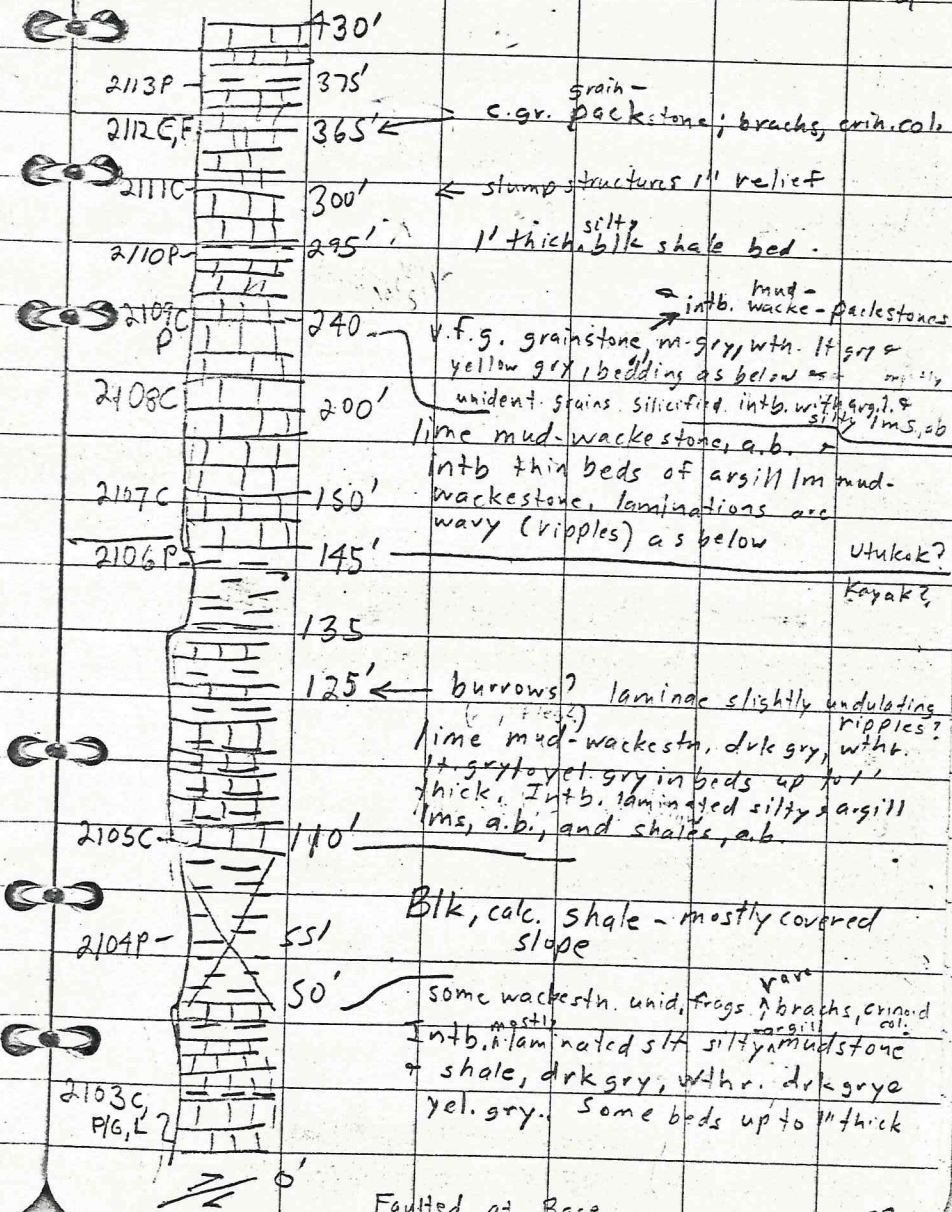 430'
2113P 375'
grain-
2112C,F 365' c.gr. packstone; brachs, crin. col.
2111C 300' slump structures 1" relief
silty
2110P 295' 1' thick, blk shale bed.
mud-
& intb. wacke-packstones
2109C
P
240
v.f.g. grainstone, m-gry, wth. lt gry &
yellow gry, bedding as below
unident. grains. silicified intb. with argil. &
silty lms, ab
2108C 200'
lime mud-wackestone, a.b. &
intb thin beds of argill lm mud-
2107C 150' wackestone, laminations are
wavy (ripples) as below
2106P 145' Utukok?
Kayak?
135
125' burrows? laminae slightly undulating
ripples?
lime mud-wackestn. drk gry, wthr.
lt. gry to yel. gry in beds up to 1'
thick. Intb. laminated silty & argill
lms, a.b., and shales, a.b.
2105C 110'
Blk, calc. shale - mostly covered
slope
2104P 55'
50'
rare
some wackestn. unid. frags. brachs, crinoid
col.
mostly argill
Intb. laminated slt silty mudstone
& shale, drk gry, wthr. drk gry &
yel. gry. Some beds up to 1" thick
2103C
P/G, L
0'
Faulted at Base